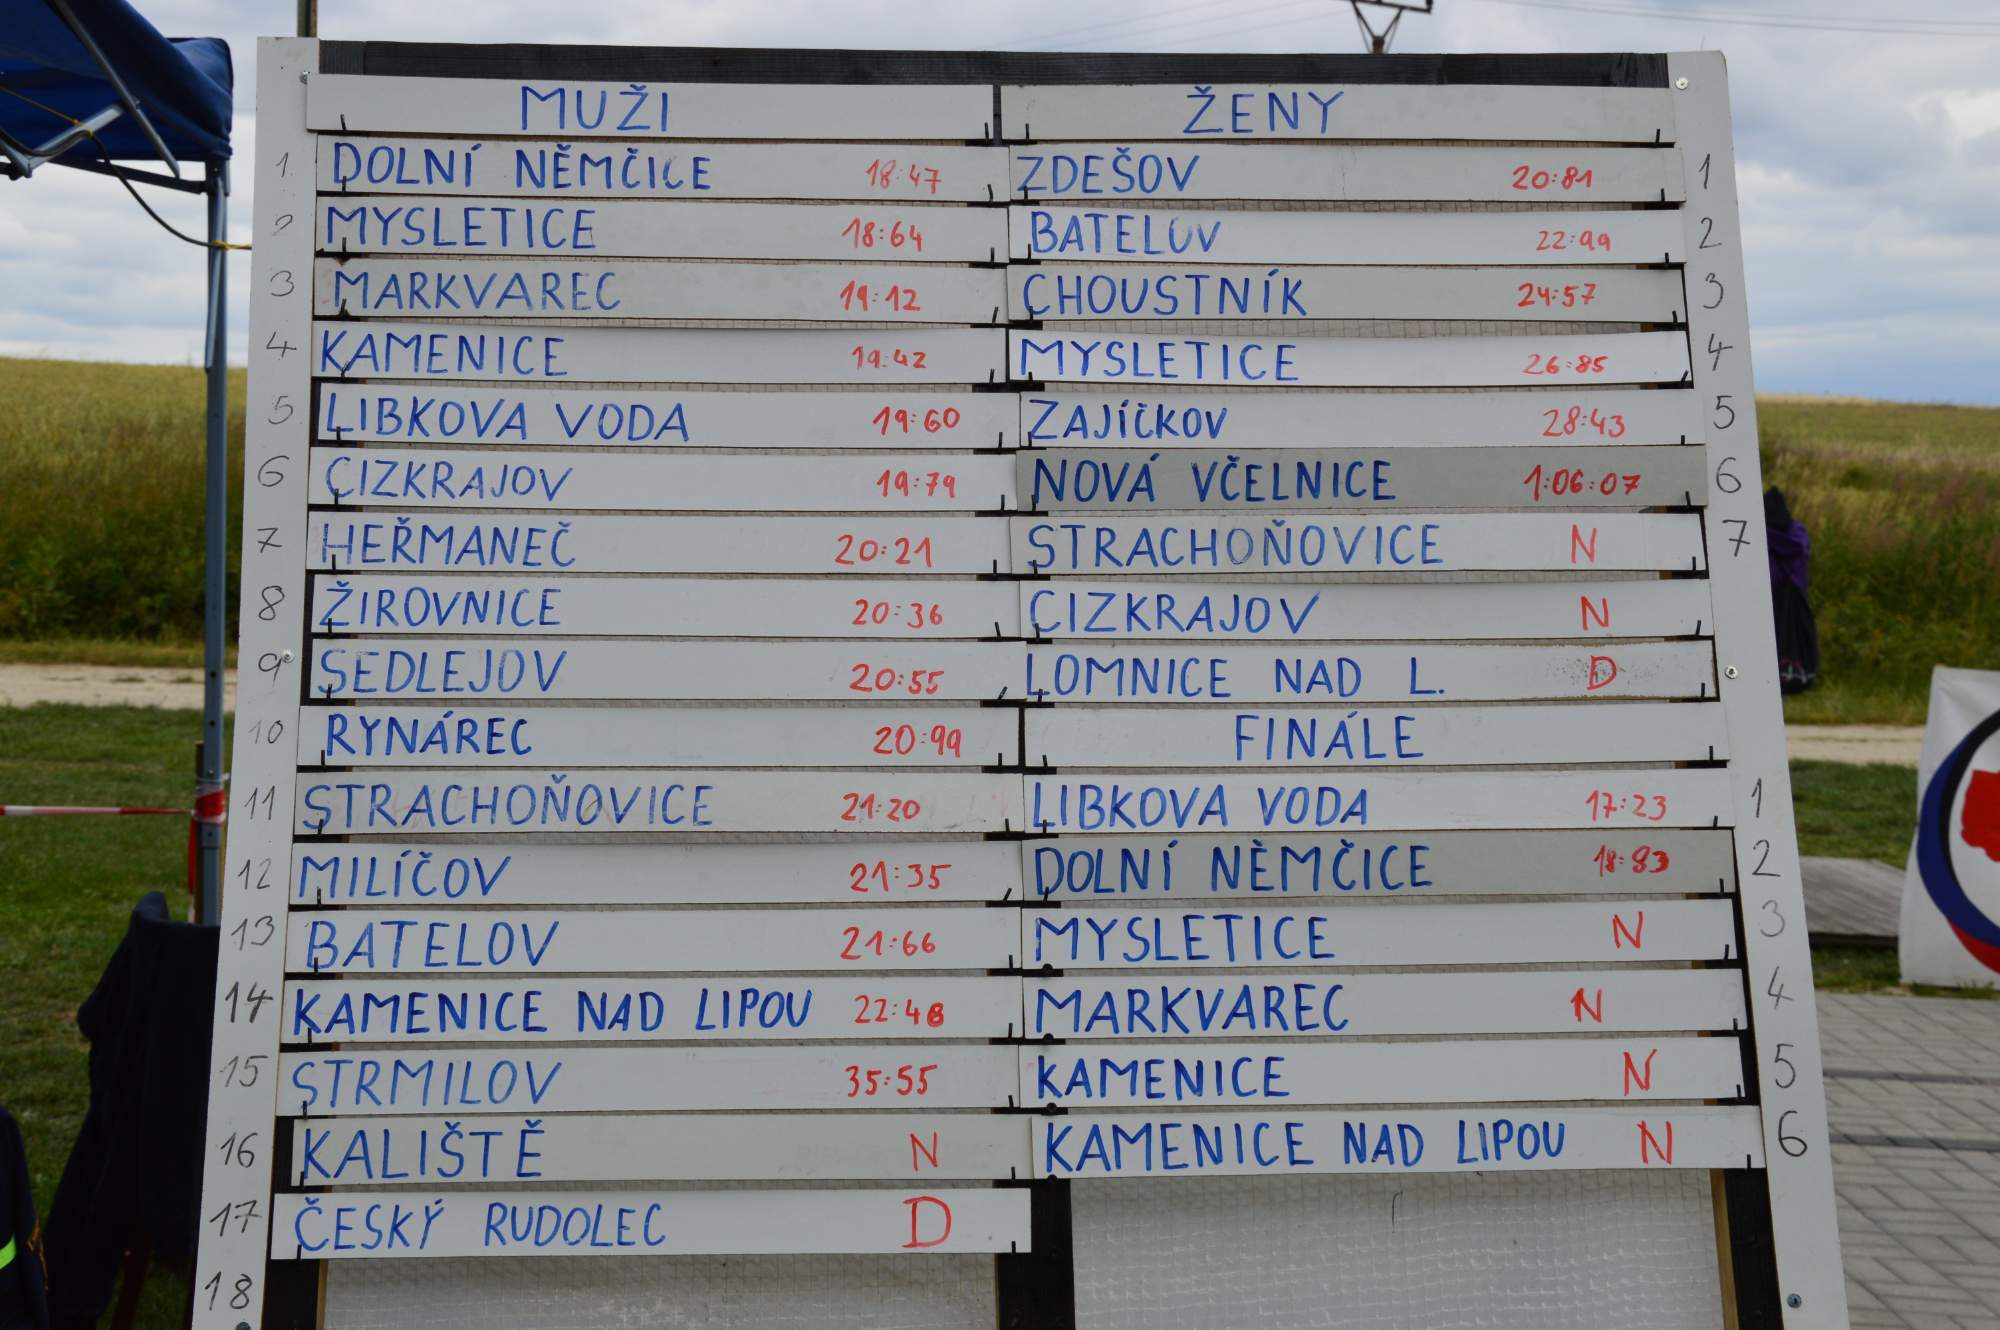 MUŽI
1. DOLNÍ NĚMČICE 18:47
2 MYSLETICE 18:64
3 MARKVAREC 19:12
4 KAMENICE 19:42
5 LIBKOVA VODA 19:60
6 CIZKRAJOV 19:79
7 HEŘMANEČ 20:21
8 ŽIROVNICE 20:36
9 SEDLEJOV 20:55
10 RYNÁREC 20:99
11 STRACHOŇOVICE 21:20
12 MILÍČOV 21:35
13 BATELOV 21:66
14 KAMENICE NAD LIPOU 22:48
15 STRMILOV 35:55
16 KALIŠTĚ N
17 ČESKÝ RUDOLEC D
18
ŽENY
ZDEŠOV 20:81 1
BATELOV 22:99 2
CHOUSTNÍK 24:57 3
MYSLETICE 26:85 4
ZAJÍČKOV 28:43 5
NOVÁ VČELNICE 1:06:07 6
STRACHOŇOVICE N 7
CIZKRAJOV N
LOMNICE NAD L. D
FINÁLE
LIBKOVA VODA 17:23 1
DOLNÍ NĚMČICE 18:83 2
MYSLETICE N 3
MARKVAREC N 4
KAMENICE N 5
KAMENICE NAD LIPOU N 6